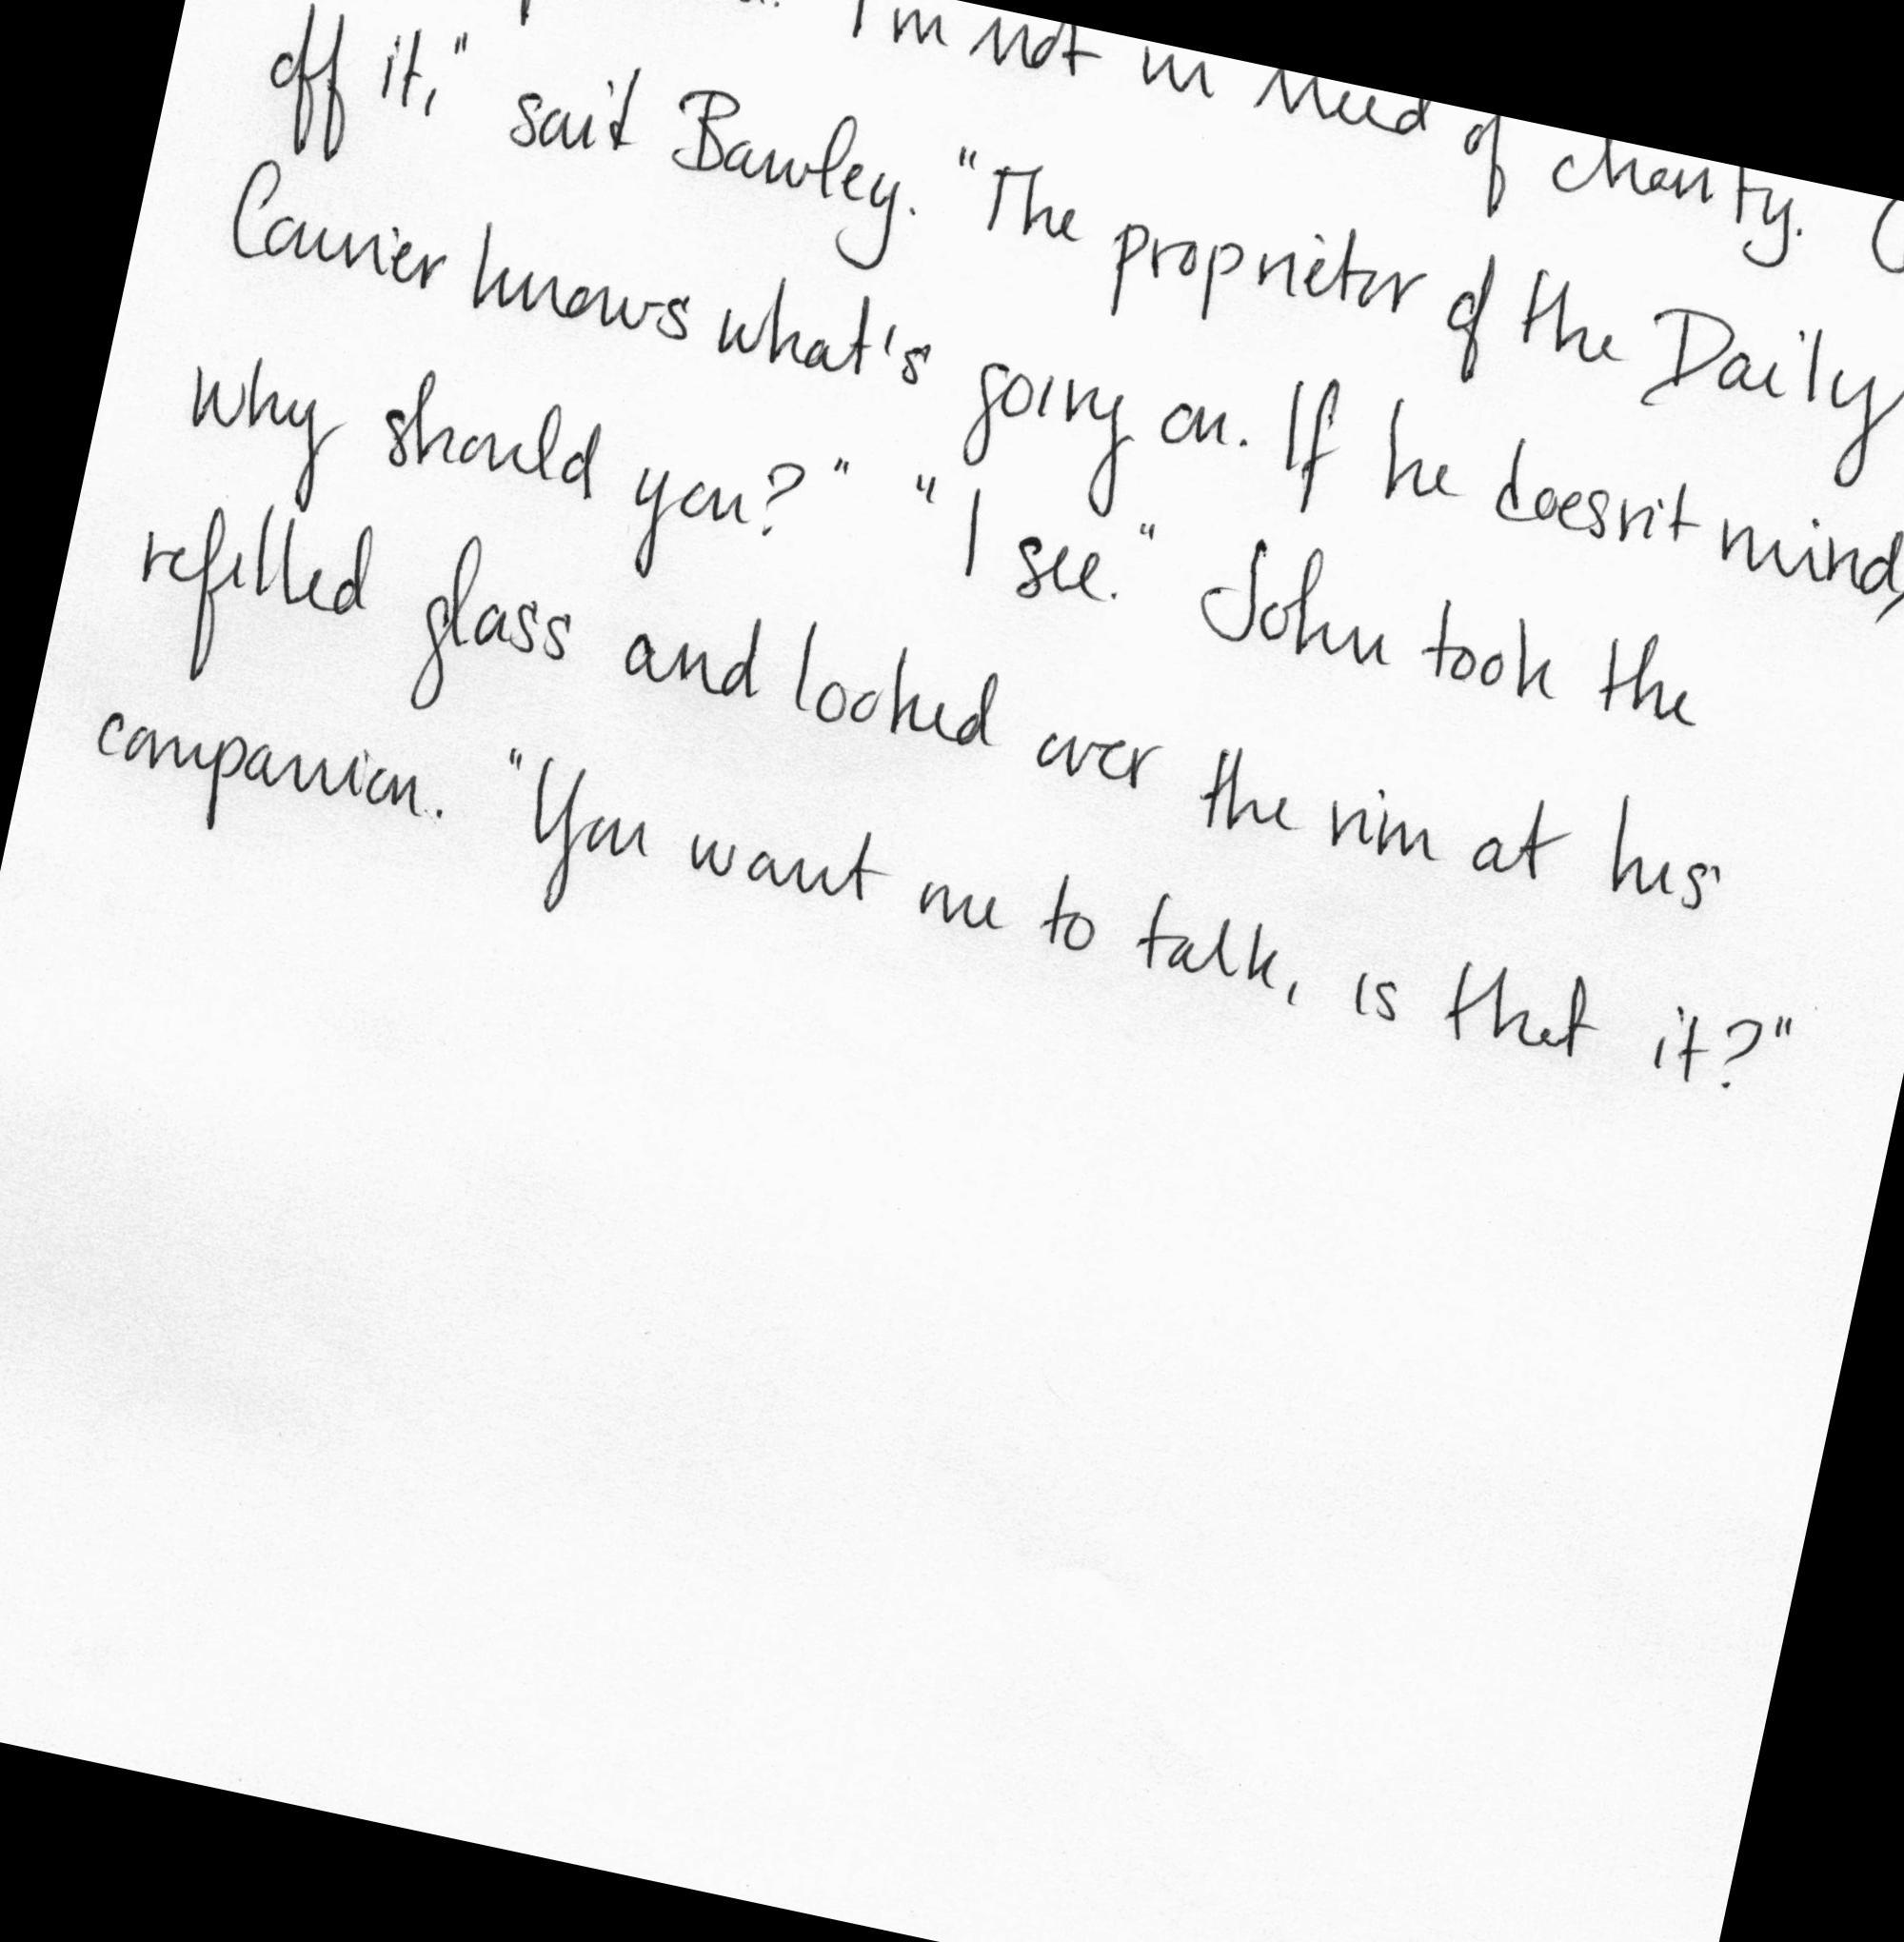 I'm not in need of charity.
off it," said Bawley. "The proprietor of the Daily
Courier knows what's going on. If he doesn't mind,
why should you?" "I see." John took the
refilled glass and looked over the rim at his
companion. "You want me to talk, is that it?"